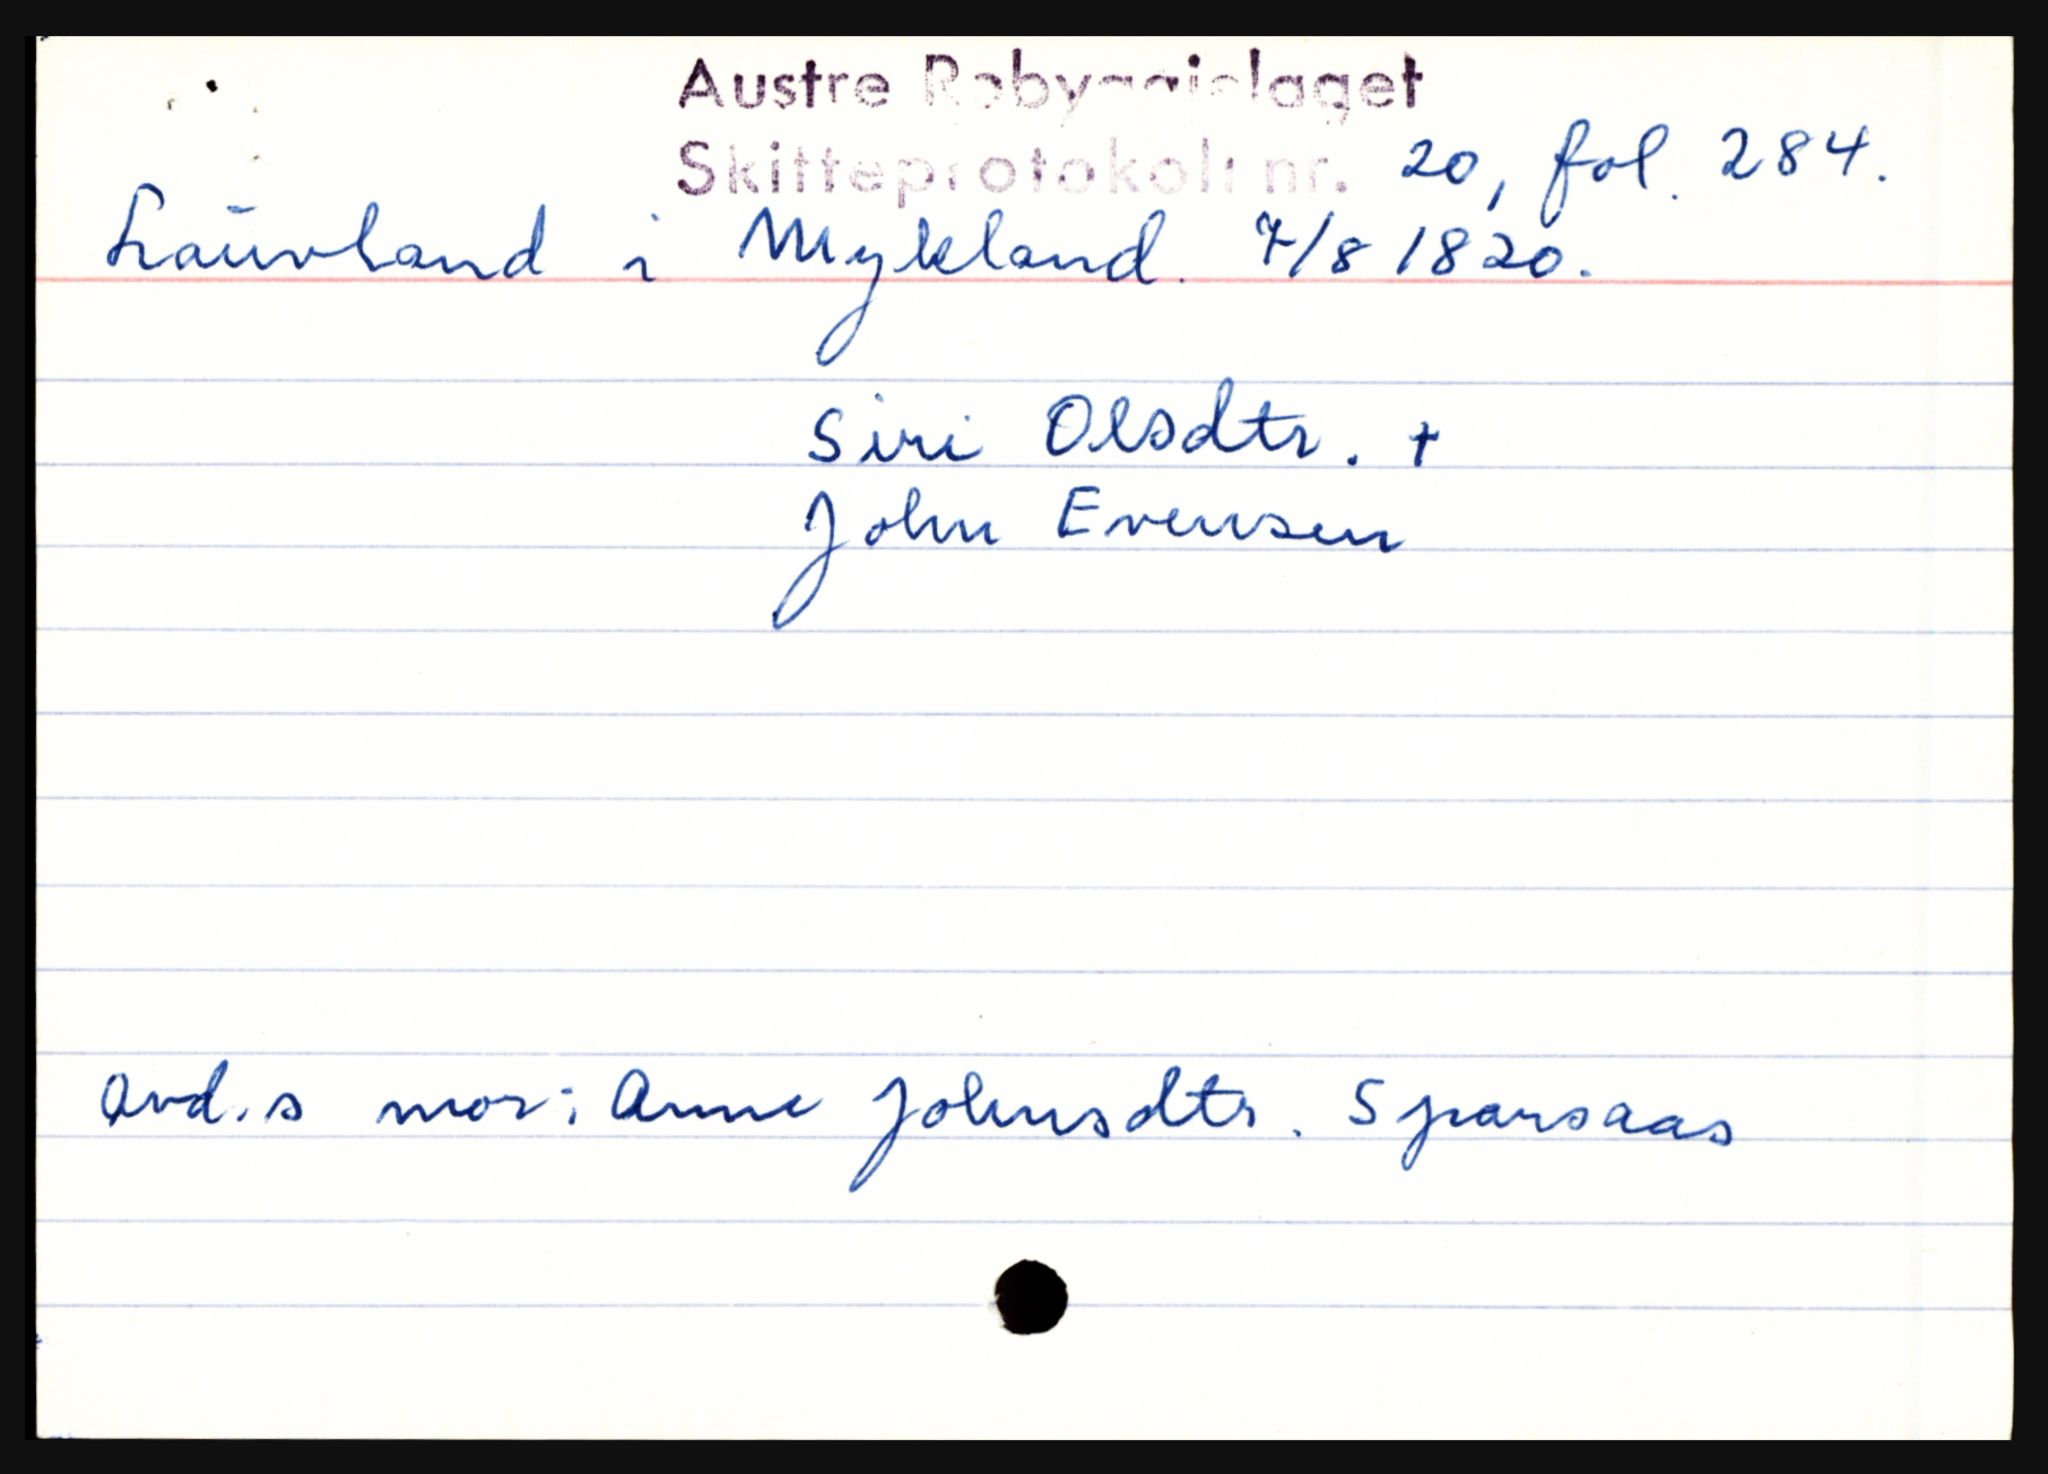 Austre Råbyggjelaget
Skifteprotokoll nr. 20, fol. 284.
Lauvland i Mykland. 7/8 1820.
Siri Olsdtr. +
John Evensen
Avd.s mor: Anne Johnsdtr. Sparsaas